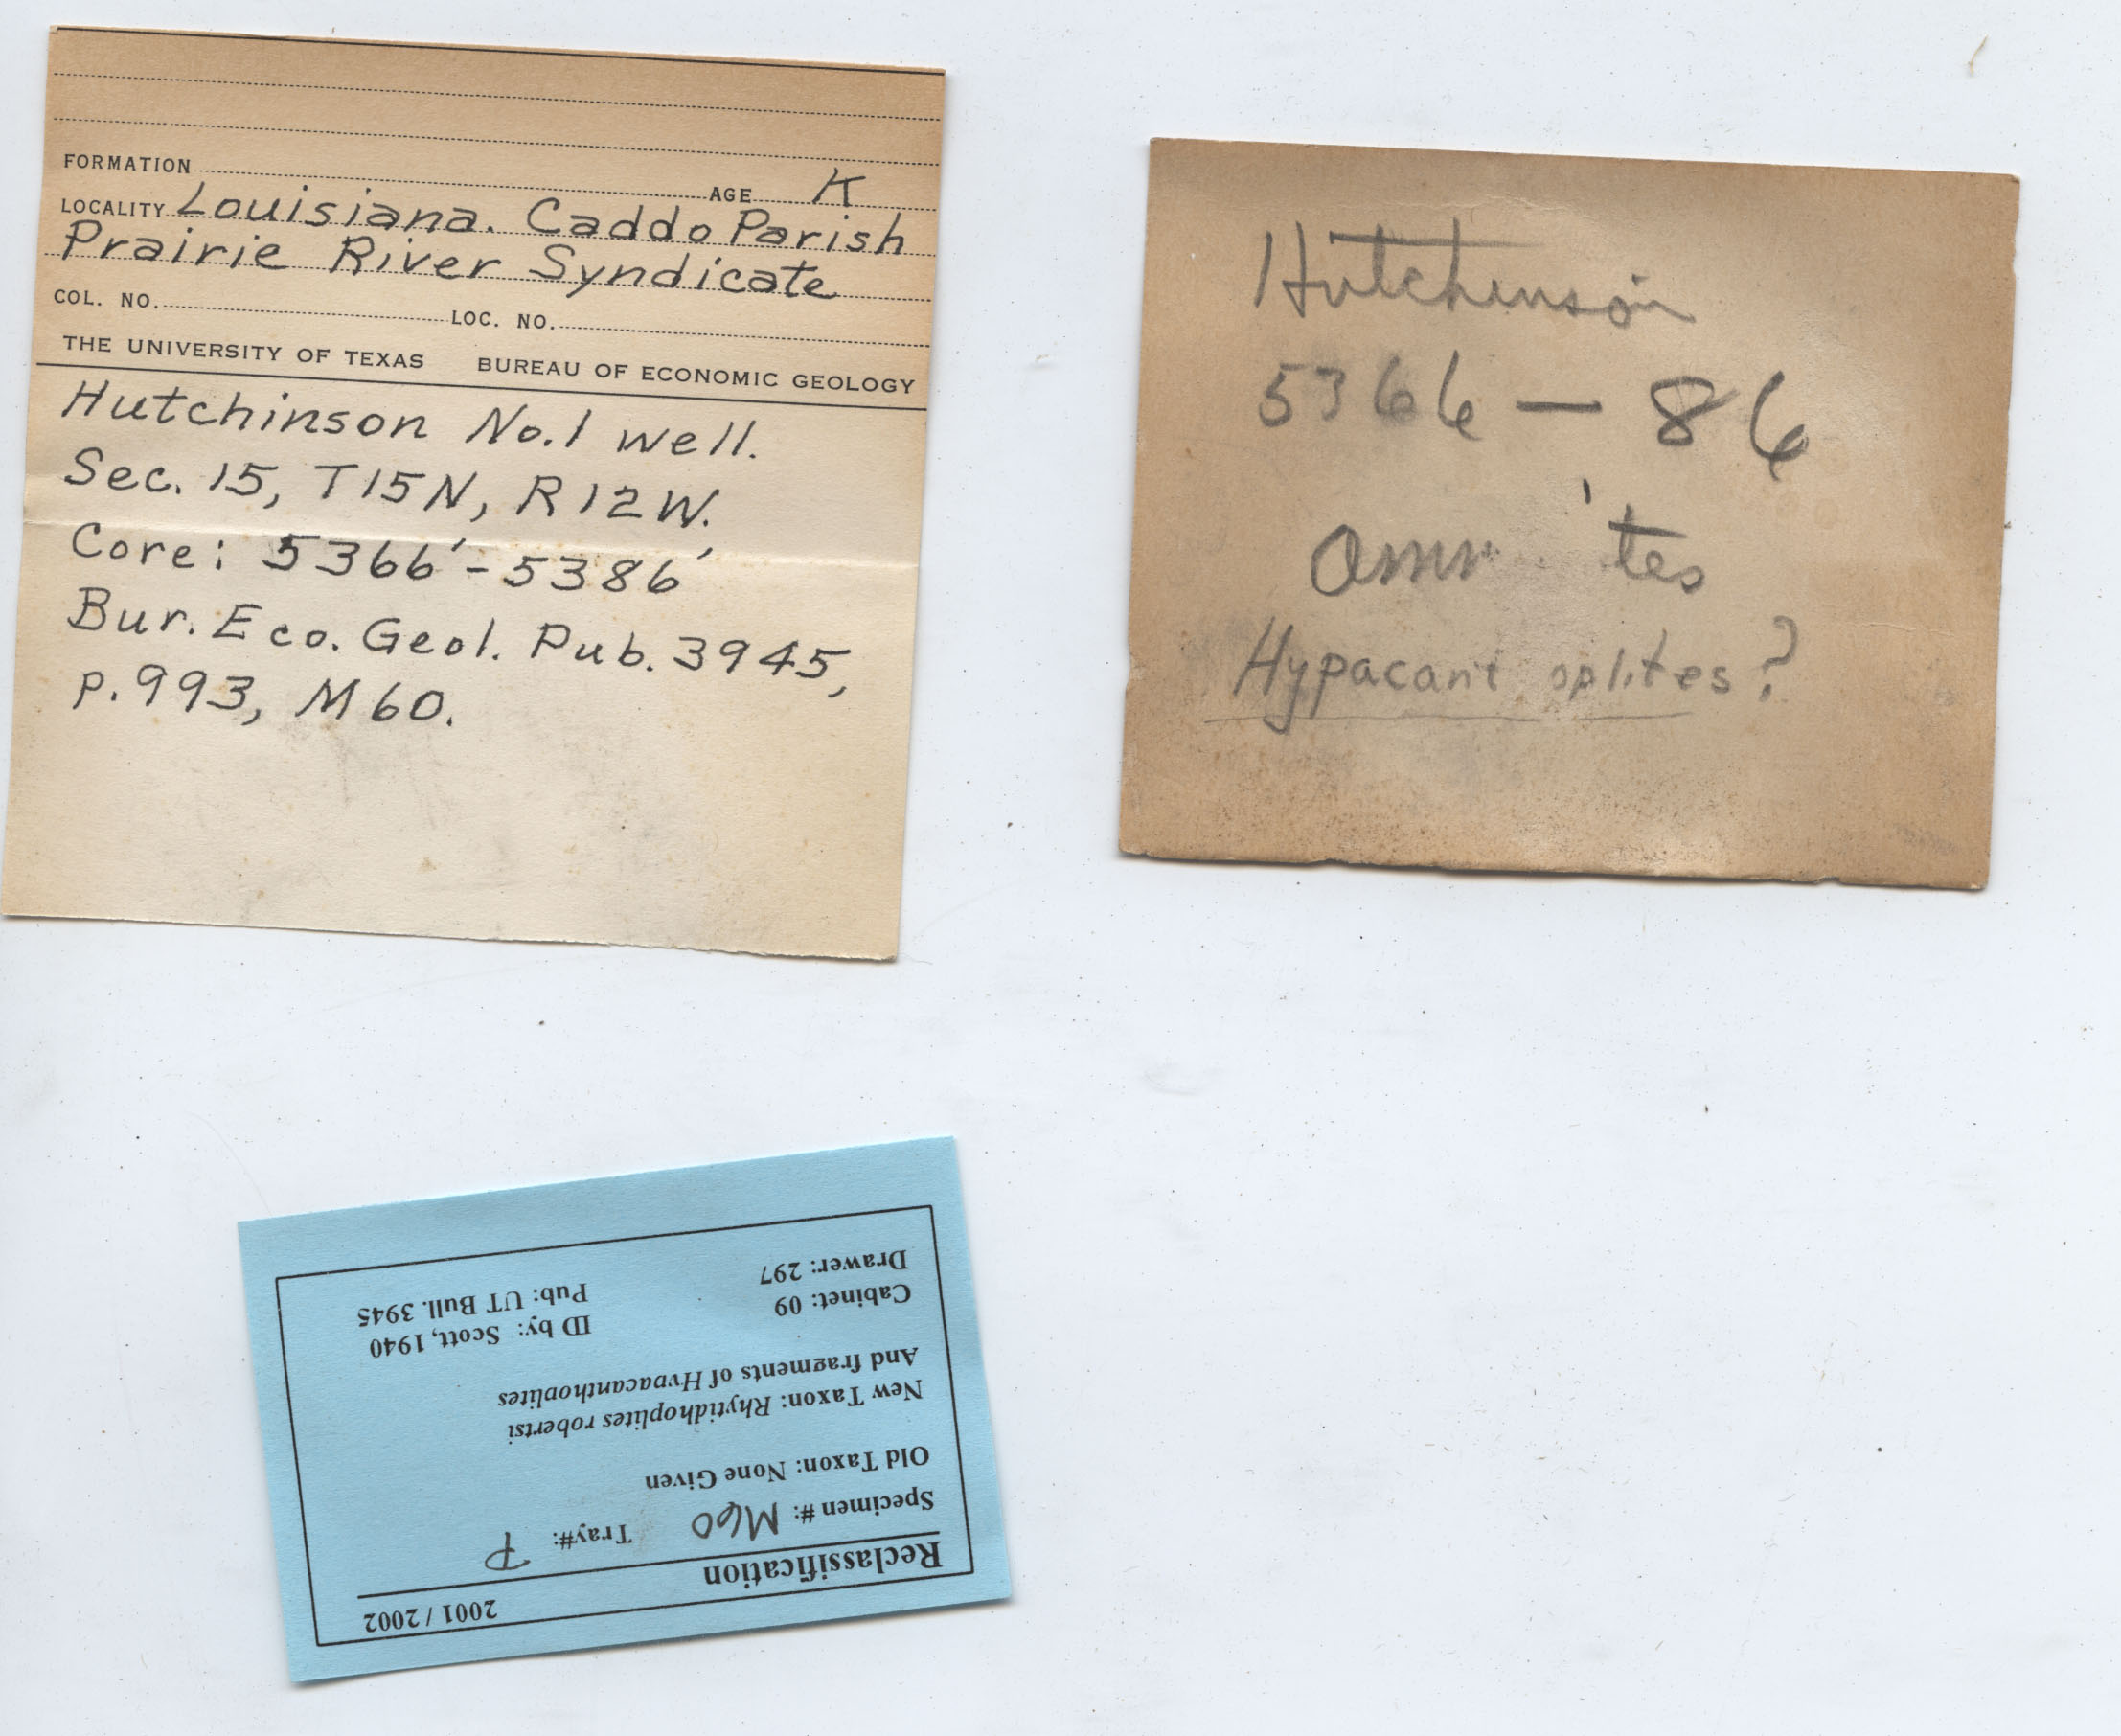 FORMATION AGE K
LOCALITY Louisiana. Caddo Parish
Prairie River Syndicate
COL. NO. LOC. NO.
THE UNIVERSITY OF TEXAS BUREAU OF ECONOMIC GEOLOGY
Hutchinson No.1 well.
Sec. 15, T15N, R12W.
Core: 5366'-5386'
Bur. Eco. Geol. Pub. 3945,
p. 993, M60.
Hutchinson
5366 — 86
Amm tes
Hypacant oplites?
2001 / 2002
Reclassification
Specimen #: M60 Tray#: P
Old Taxon: None Given
New Taxon: Rhytidhoplites robertsi
And fragments of Hypacanthoplites
Cabinet: 09 ID by: Scott, 1940
Drawer: 297 Pub: UT Bull. 3945